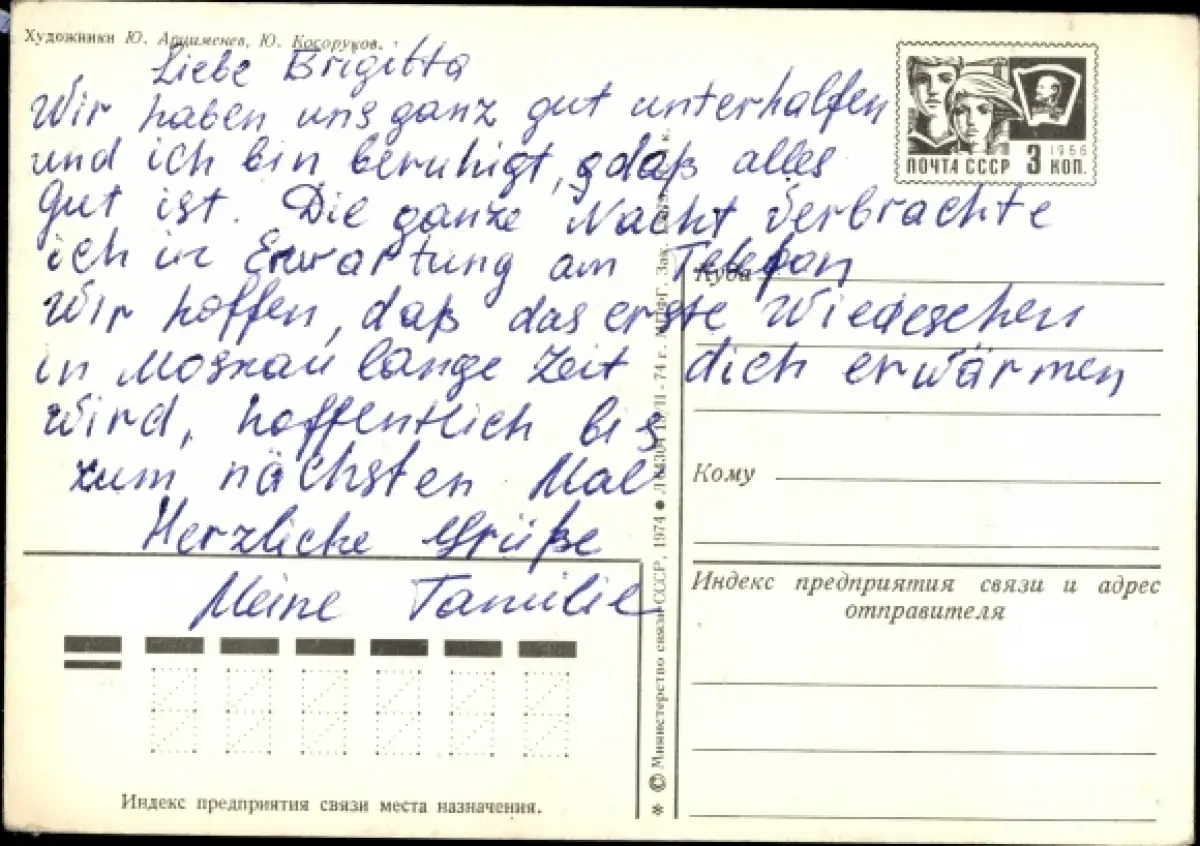 Художники Ю. Арцименев, Ю. Косоруков.
Liebe Brigitta
Wir haben uns ganz gut unterhalfen
und ich bin beruhigt, daß alles
gut ist. Die ganze Nacht verbrachte
ich in Erwartung am Telefon
Wir hoffen, daß das erste Wiedesehen
in Moskau lange Zeit dich erwärmen
wird, hoffentlich bis
zum nächsten Mal
Herzliche Grüße
Meine Familie
1966
ПОЧТА СССР 3 КОП.
Куда
Кому
Индекс предприятия связи и адрес
отправителя
Индекс предприятия связи места назначения.
※ © Министерство связи СССР, 1974 ●